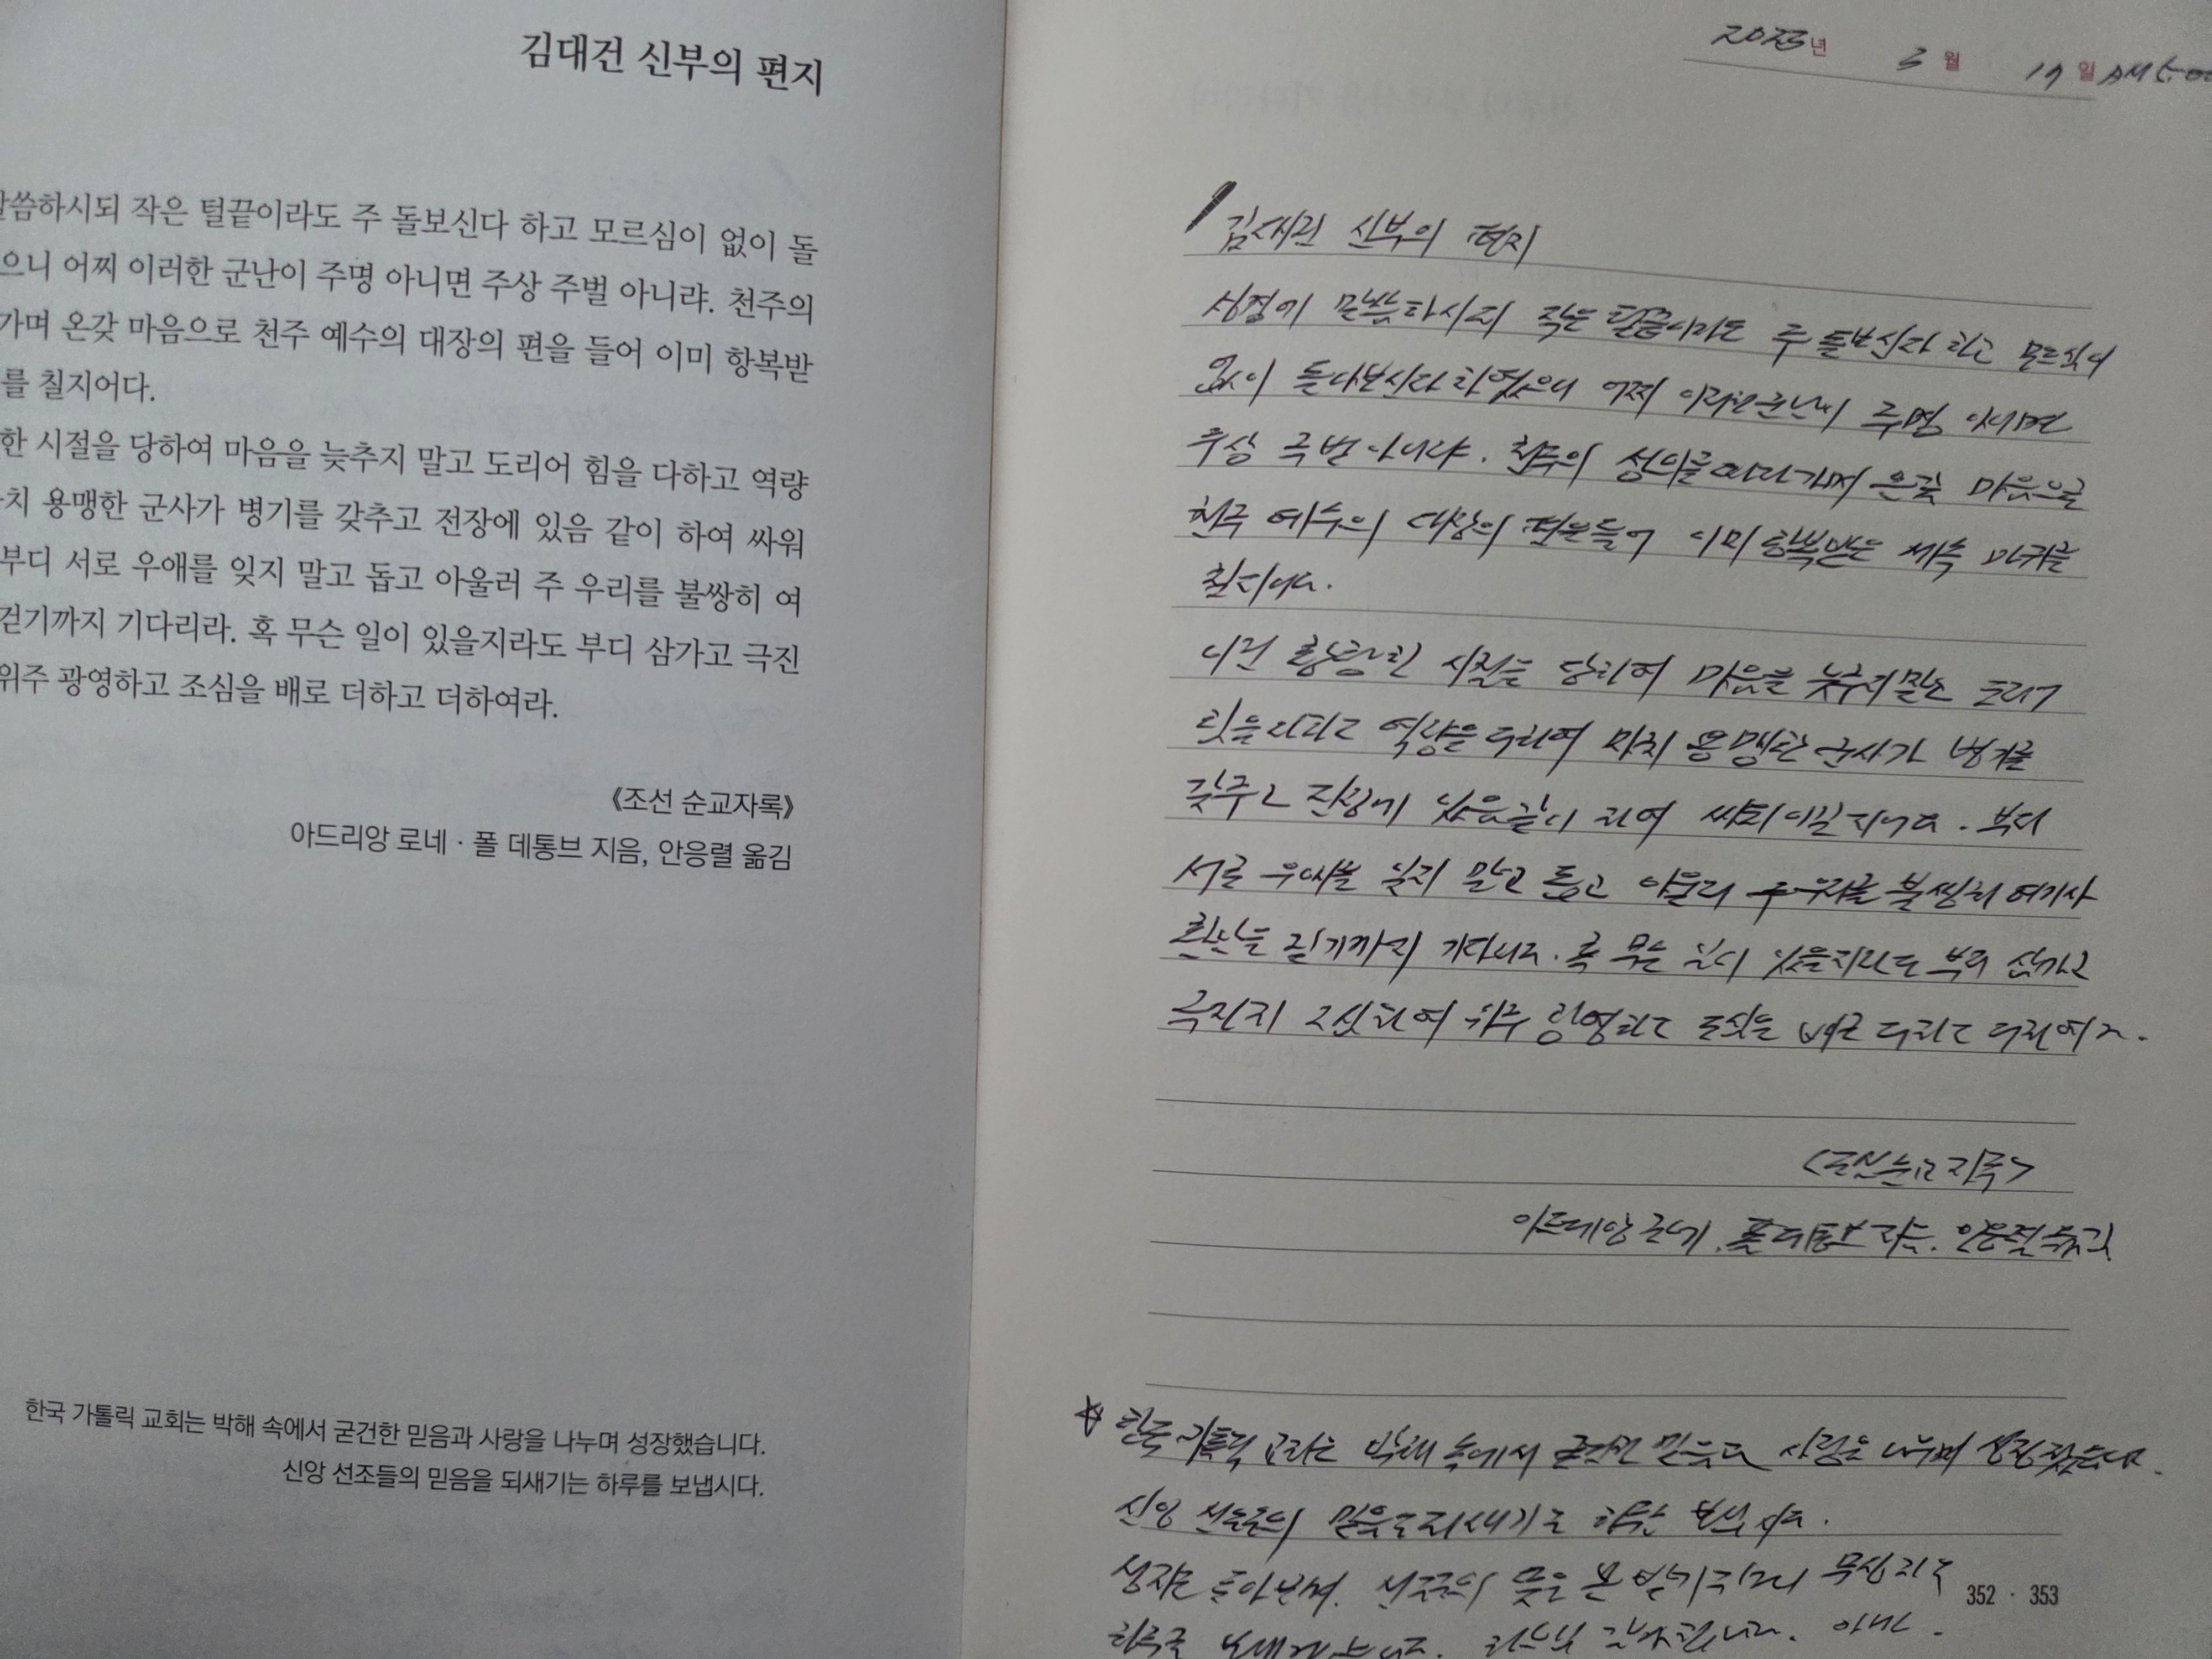 김대건 신부의 편지
말씀하시되 작은 털끝이라도 주 돌보신다 하고 모르심이 없이 돌
으니 어찌 이러한 군난이 주명 아니면 주상 주벌 아니랴. 천주의
가며 온갖 마음으로 천주 예수의 대장의 편을 들어 이미 항복받
를 칠지어다.
한 시절을 당하여 마음을 늦추지 말고 도리어 힘을 다하고 역량
치 용맹한 군사가 병기를 갖추고 전장에 있음 같이 하여 싸워
부디 서로 우애를 잊지 말고 돕고 아울러 주 우리를 불쌍히 여
걷기까지 기다리라. 혹 무슨 일이 있을지라도 부디 삼가고 극진
위주 광영하고 조심을 배로 더하고 더하여라.
《조선 순교자록》
아드리앙 로네 · 폴 데통브 지음, 안응렬 옮김
한국 가톨릭 교회는 박해 속에서 굳건한 믿음과 사랑을 나누며 성장했습니다.
신앙 선조들의 믿음을 되새기는 하루를 보냅시다.
2025년 3월 17일 AM 5:00
김대건 신부의 편지
성경에 말씀하시되 작은 털끝이라도 주 돌보신다 하고 모르심이
없이 돌아보신다 하였으니 어찌 이러한 군난이 주명 아니면
주상 주벌 아니랴. 천주의 성의를 따라가며 온갖 마음으로
천주 예수의 대장의 편을 들어 이미 항복받은 세속 마귀를
칠지어다.
이런 황황한 시절을 당하여 마음을 늦추지 말고 도리어
힘을 다하고 역량을 더하여 마치 용맹한 군사가 병기를
갖추고 전장에 있음같이 하여 싸워 이길지어다. 부디
서로 우애를 잊지 말고 돕고 아울러 주 우리를 불쌍히 여기사
환난을 걷기까지 기다리라. 혹 무슨 일이 있을지라도 부디 삼가고
극진히 조심하여 위주 광영하고 조심을 배로 더하고 더하여라.
<조선 순교자록>
아드리앙 로네. 폴 데통브 지음. 안응렬 옮김
☆ 한국 가톨릭 교회는 박해 속에서 굳건한 믿음과 사랑을 나누며 성장했습니다.
신앙 선조들의 믿음을 되새기는 하루를 보냅시다.
성지를 돌아보며. 선조들의 뜻을 본받기
하루를 감사합니다. 아멘.
352 · 353